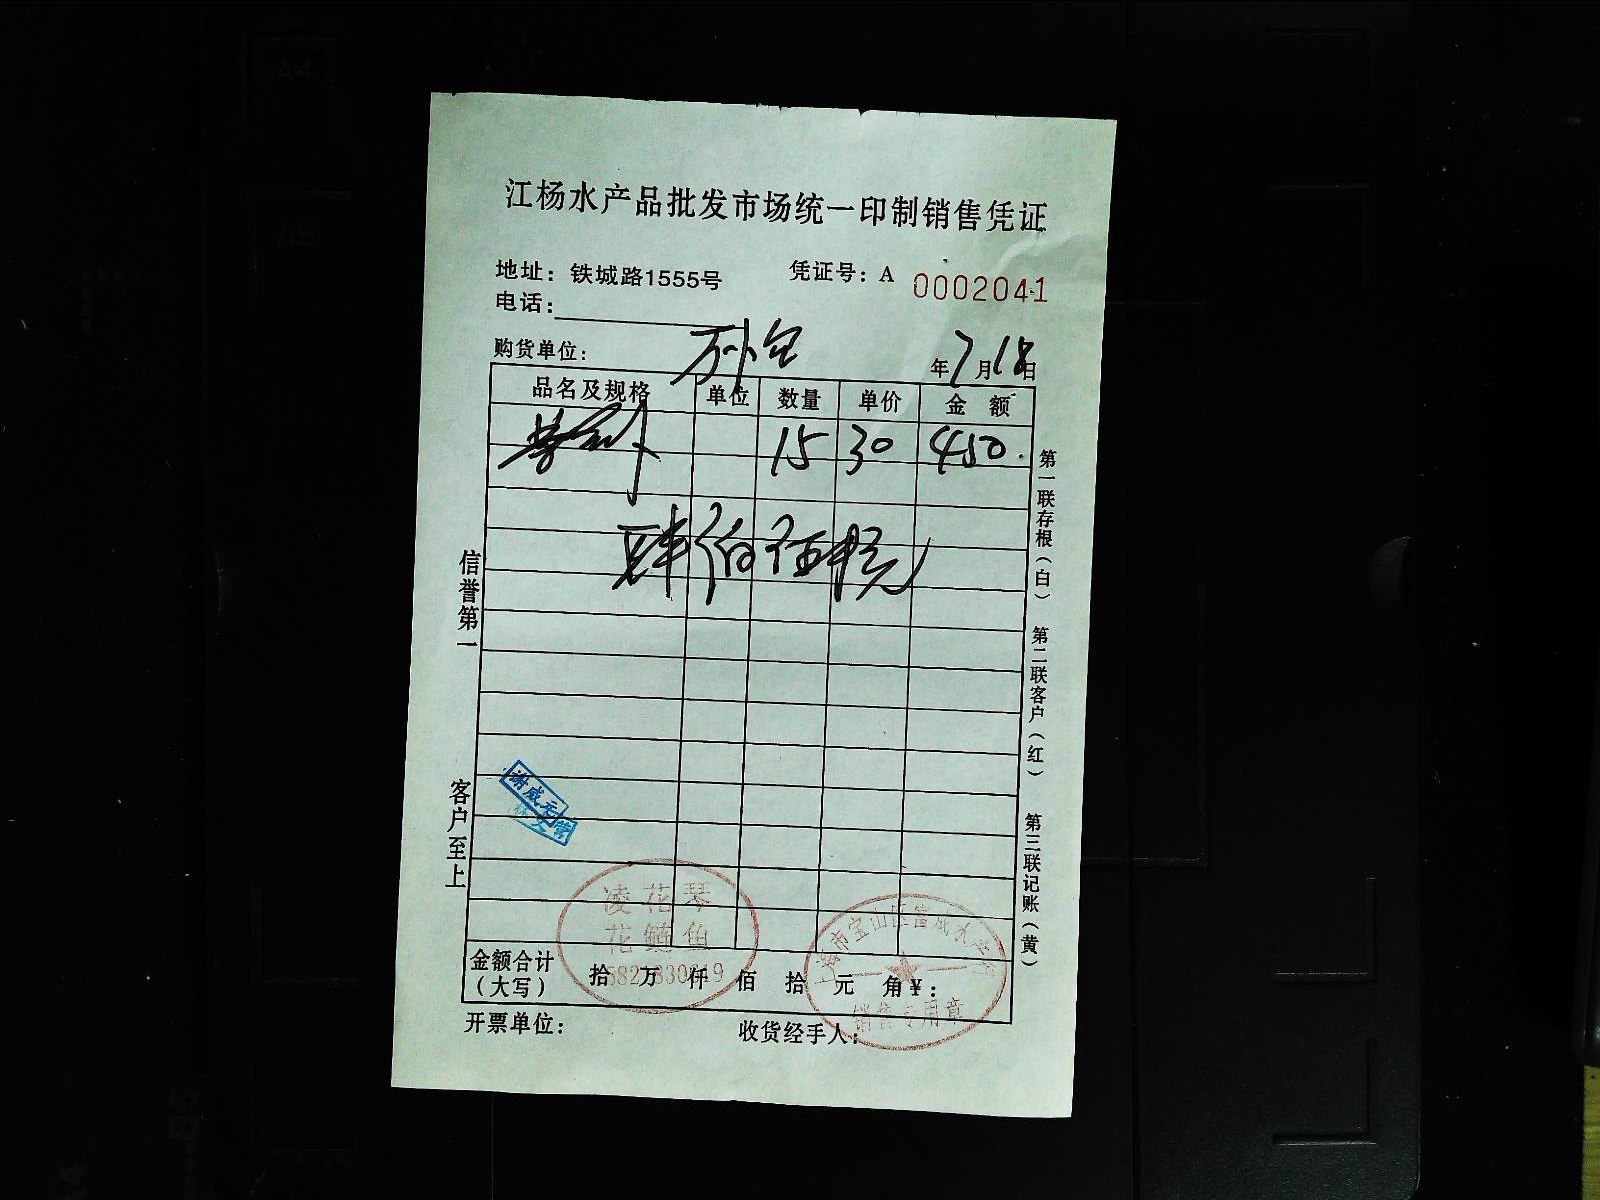 江杨水产品批发市场统一印制销售凭证
地址：铁城路1555号
凭证号：A 0002041
电话：
购货单位：
年7月18日
品名及规格 单位 数量 单价 金额
15 30 450.
肆佰伍拾元
信誉第一
客户至上
第一联存根（白）
第二联客户（红）
第三联记账（黄）
谢成元
凌花琴
花鲢鱼
金额合计（大写） 拾 万 仟 佰 拾 元 角 ¥：
销售专用章
开票单位：
收货经手人：